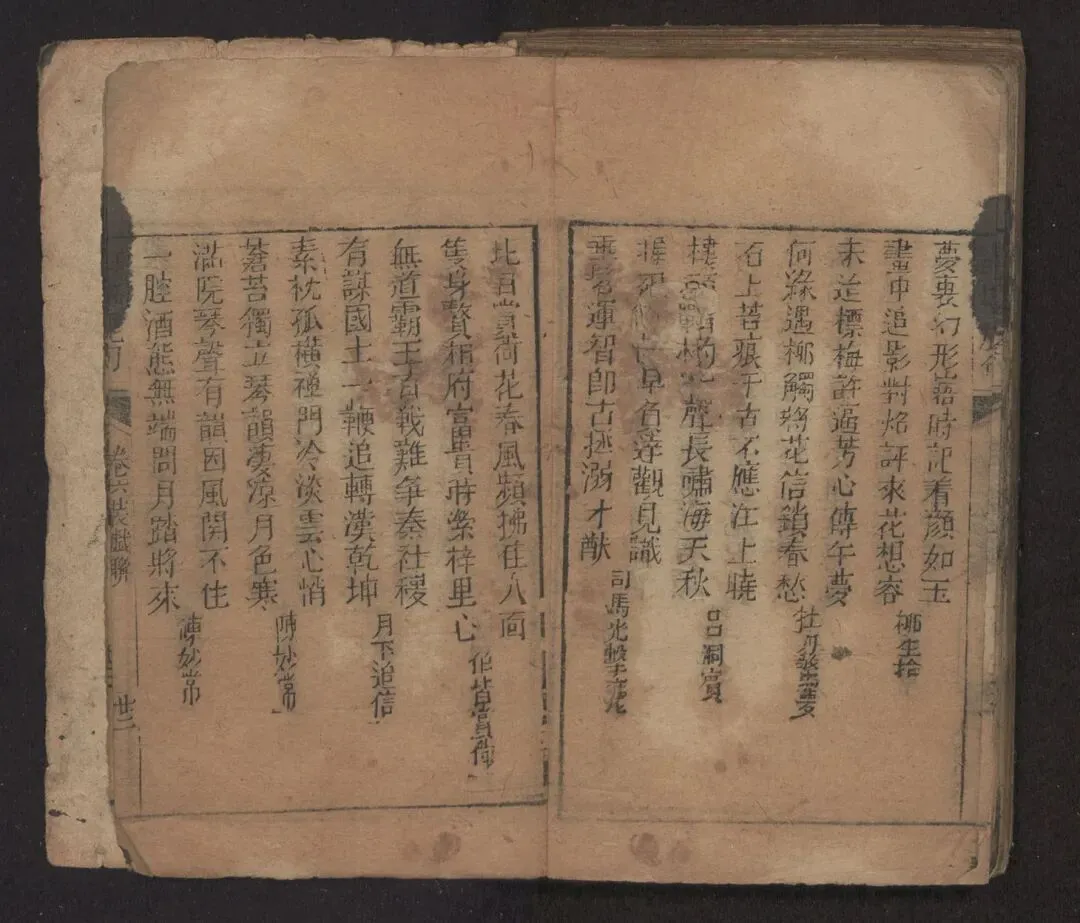 夢裏幻形寤時記着顏如玉
畫中追影對炤評來花想容
柳生拾
未迨標梅許過芳心傳午夢
何緣遇柳觸將花信鎖春愁
牡丹
石上苔痕千古不應江上曉
樓 聲長嘯海天秋
呂洞賓
早名達觀見識
運智即古拯溺才猷
司馬光擊瓮
此日賞荷花春風頻拂在人面
隻身贅相府富貴時縈梓里心
伯喈賞荷
無道霸王百戰難爭秦社稷
有謀國士一鞭追轉漢乾坤
月下追信
素枕孤橫禪門冷淡雲心悄
蒼苔獨立琴韻凄涼月色寒
陳妙常
滿院琴聲有韻因風閉不住
一腔酒態無端問月踏將來
陳妙常
卷六裝戲聯
廿二